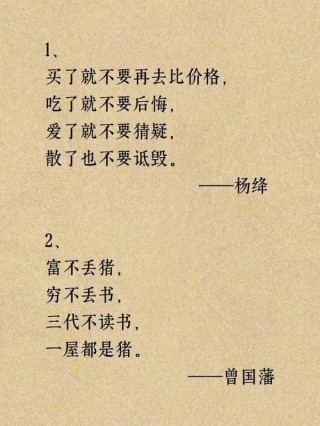 1、
买了就不要再去比价格，
吃了就不要后悔，
爱了就不要猜疑，
散了也不要诋毁。
——杨绛
2、
富不丢猪，
穷不丢书，
三代不读书，
一屋都是猪。
——曾国藩